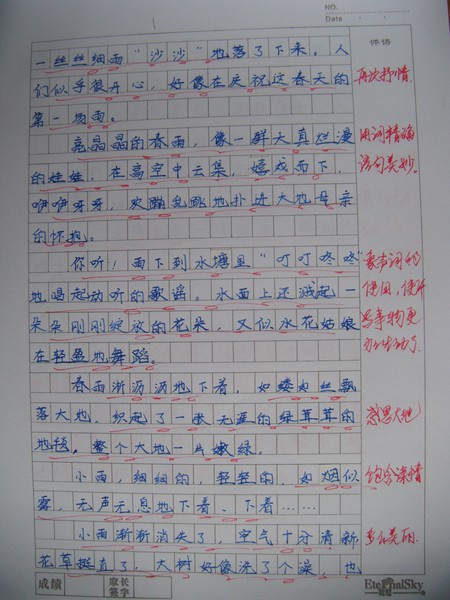 NO.
Date
评语
一丝丝细雨“沙沙”地落了下来。人
们似乎很开心，好像在庆祝这春天的
第一场雨。
亮晶晶的春雨，像一群天真烂漫
的娃娃，在高空中云集，嬉戏而下，
咿咿呀呀，欢蹦乱跳地扑进大地母亲
的怀抱。
你听！雨下到水塘里“叮叮咚咚”
地唱起动听的歌谣。水面上还溅起一
朵朵刚刚绽放的花朵，又似水花姑娘
在轻盈地舞蹈。
春雨淅沥沥地下着，如缕如丝飘
落大地，织起了一张无涯的绿茸茸的
地毯，整个大地一片嫩绿。
小雨，细细的，轻轻的，如烟似
雾，无声无息地下着、下着……
小雨渐渐消失了，空气十分清新
花草挺直了，大树好像洗了个澡，也
再次抒情
用词精确
语句美妙。
象声词的
使用，使所
写事物更
加生动了
恩思大地
饱含深情
多么美丽
成绩
家长
签字
EternalSky